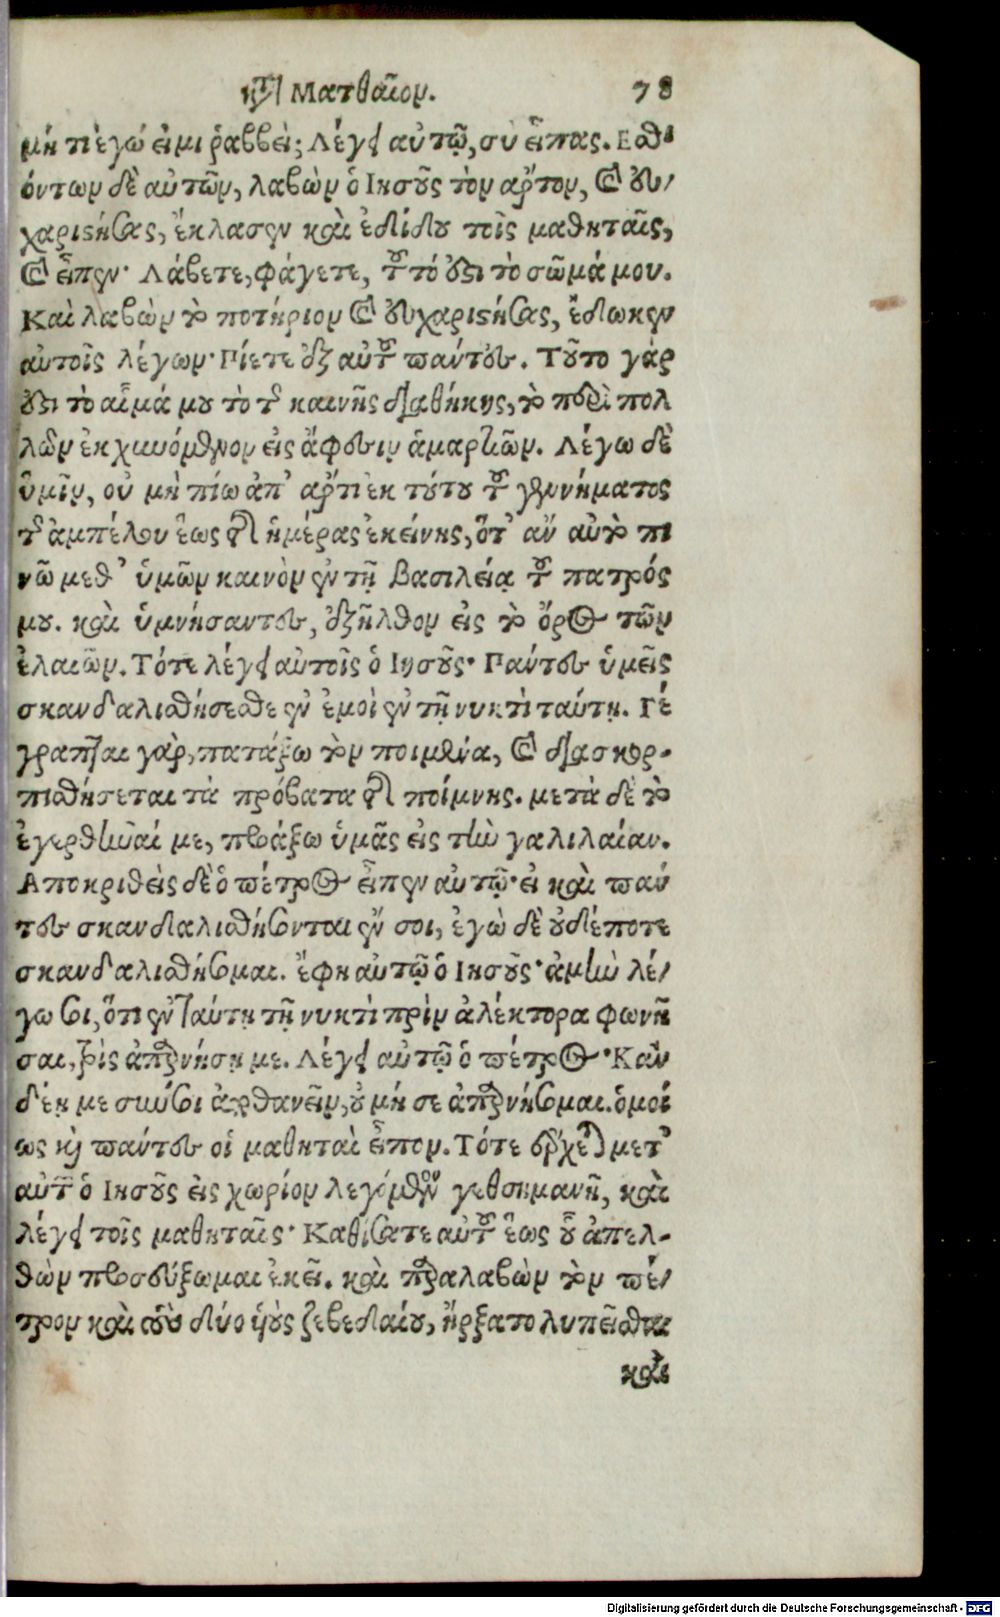 κτ̀ Ματθαῖον. 78
μή τι ἐγώ εἰμι ῥαββεί; Λέγει αὐτῷ, σὺ εἶπας. Εσθι
όντων δὲ αὐτῶν, λαβὼν ὁ Ιησοῦς τὸν ἄρτον, καὶ ευ/
χαριστήσας, ἔκλασεν καὶ ἐδίδου τοῖς μαθηταῖς,
καὶ εἶπεν· Λάβετε, φάγετε, τοῦτό ἐστι τὸ σῶμά μου.
Καὶ λαβὼν τὸ ποτήριον καὶ ευχαριστήσας, ἔδωκεν
αὐτοῖς λέγων· Πίετε ἐξ αὐτοῦ πάντες. Τοῦτο γάρ
ἐστι τὸ αἷμά μου τὸ τῆς καινῆς διαθήκης, τὸ περὶ πολ
λῶν ἐκχυνόμενον εἰς ἄφεσιν ἁμαρτιῶν. Λέγω δὲ
ὑμῖν, οὐ μὴ πίω ἀπ' ἄρτι ἐκ τούτου τοῦ γεννήματος
τῆς ἀμπέλου ἕως τῆς ἡμέρας ἐκείνης, ὅτ' αὖ αὐτὸ πι
νῶ μεθ' ὑμῶν καινὸν ἐν τῇ βασιλείᾳ τοῦ πατρός
μου. καὶ ὑμνήσαντες, ἐξῆλθον εἰς τὸ ὄρος τῶν
ἐλαιῶν. Τότε λέγει αὐτοῖς ὁ Ιησοῦς· Πάντες ὑμεῖς
σκανδαλισθήσεσθε ἐν ἐμοὶ ἐν τῇ νυκτὶ ταύτῃ. Γέ
γραπται γὰρ, πατάξω τὸν ποιμένα, καὶ διασκορ-
πισθήσεται τὰ πρόβατα τῆς ποίμνης. μετὰ δὲ τὸ
ἐγερθῆναί με, προάξω ὑμᾶς εἰς τὴν γαλιλαίαν.
Αποκριθεὶς δὲ ὁ πέτρος εἶπεν αὐτῷ· εἰ καὶ πάν
τες σκανδαλισθήσονται ἐν σοι, ἐγὼ δὲ οὐδέποτε
σκανδαλισθήσομαι. ἔφη αὐτῷ ὁ Ιησοῦς· ἀμὴν λέ/
γω σοι, ὅτι ἐν ταύτῃ τῇ νυκτὶ πρὶν ἀλέκτορα φωνῆ
σαι, τρὶς ἀπαρνήσῃ με. Λέγει αὐτῷ ὁ πέτρος· Κἂν
δέῃ με σὺν σοι ἀποθανεῖν, οὐ μή σε ἀπαρνήσομαι. ὁμοί
ως καὶ πάντες οἱ μαθηταὶ εἶπον. Τότε ἔρχεται μετ'
αὐτῶν ὁ Ιησοῦς εἰς χωρίον λεγόμενον γεθσημανῆ, καὶ
λέγει τοῖς μαθηταῖς· Καθίσατε αὐτοῦ ἕως οὗ ἀπελ-
θὼν προσεύξωμαι ἐκεῖ. καὶ παραλαβὼν τὸν πέ/
τρον καὶ τοὺς δύο υἱοὺς ζεβεδαίου, ἤρξατο λυπεῖσθαι
καὶ
Digitalisierung gefördert durch die Deutsche Forschungsgemeinschaft - DFG